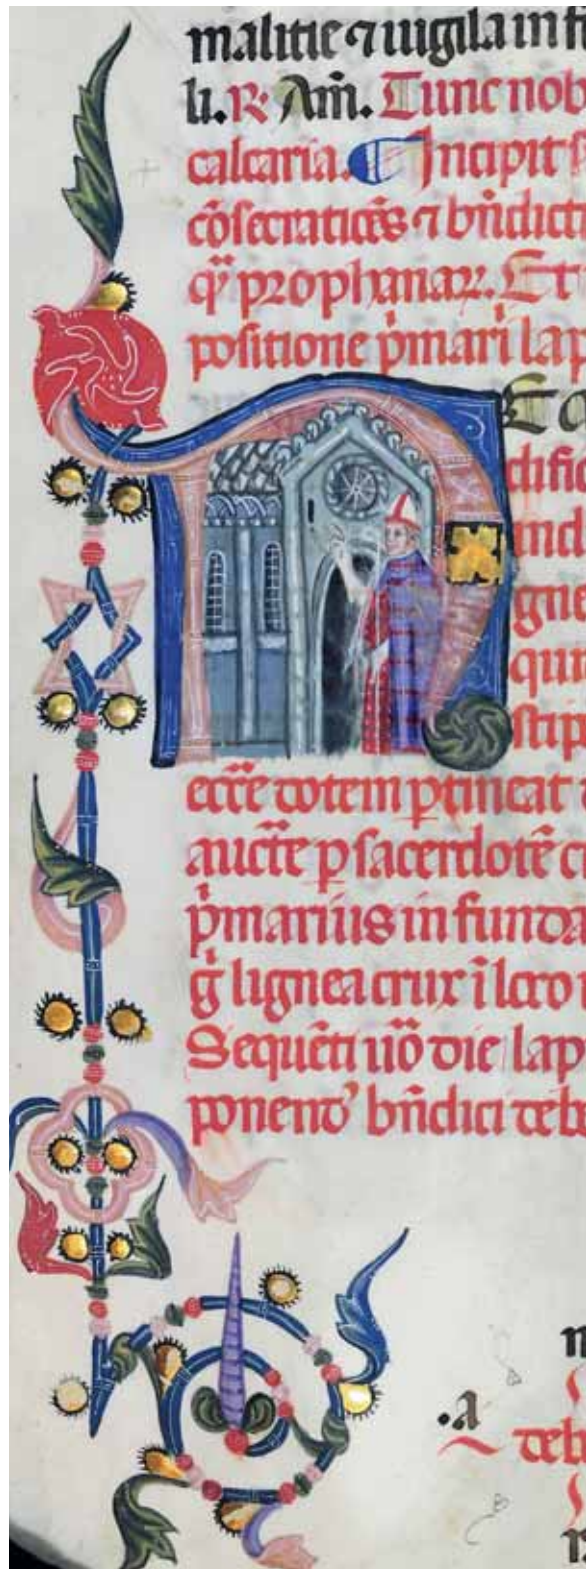 malitie ⁊ uigila in fi
li. R. Am̄. Tunc nob
calcaria. Incipit s
cōsecratiōēs ⁊ bn̄dicti
q̄ prophanaꝝ. Et
positione pͥmarͥ lap
Ea
difi
incl
gne
qui
stip
ecc̄e dotem ꝑtineat
auct̄e ꝑ sacerdotē c
pͥmarius in funda
gͥ lignea crux ī loco
Sequēti uō die lap
ponend' bn̄dici deb
.a
deb